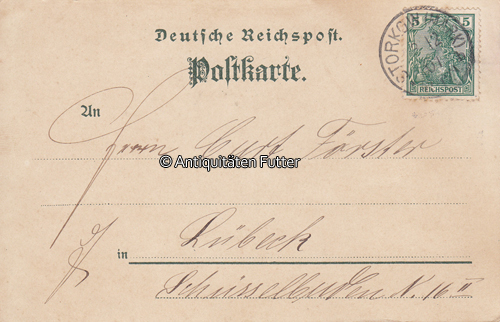 Deutsche Reichspost.
Postkarte.
5
REICHSPOST
STORKOW (MARK)
An
Herrn Curt Förster
© Antiquitäten Futter
in Lübeck
Schüsselbuden N. 16 II